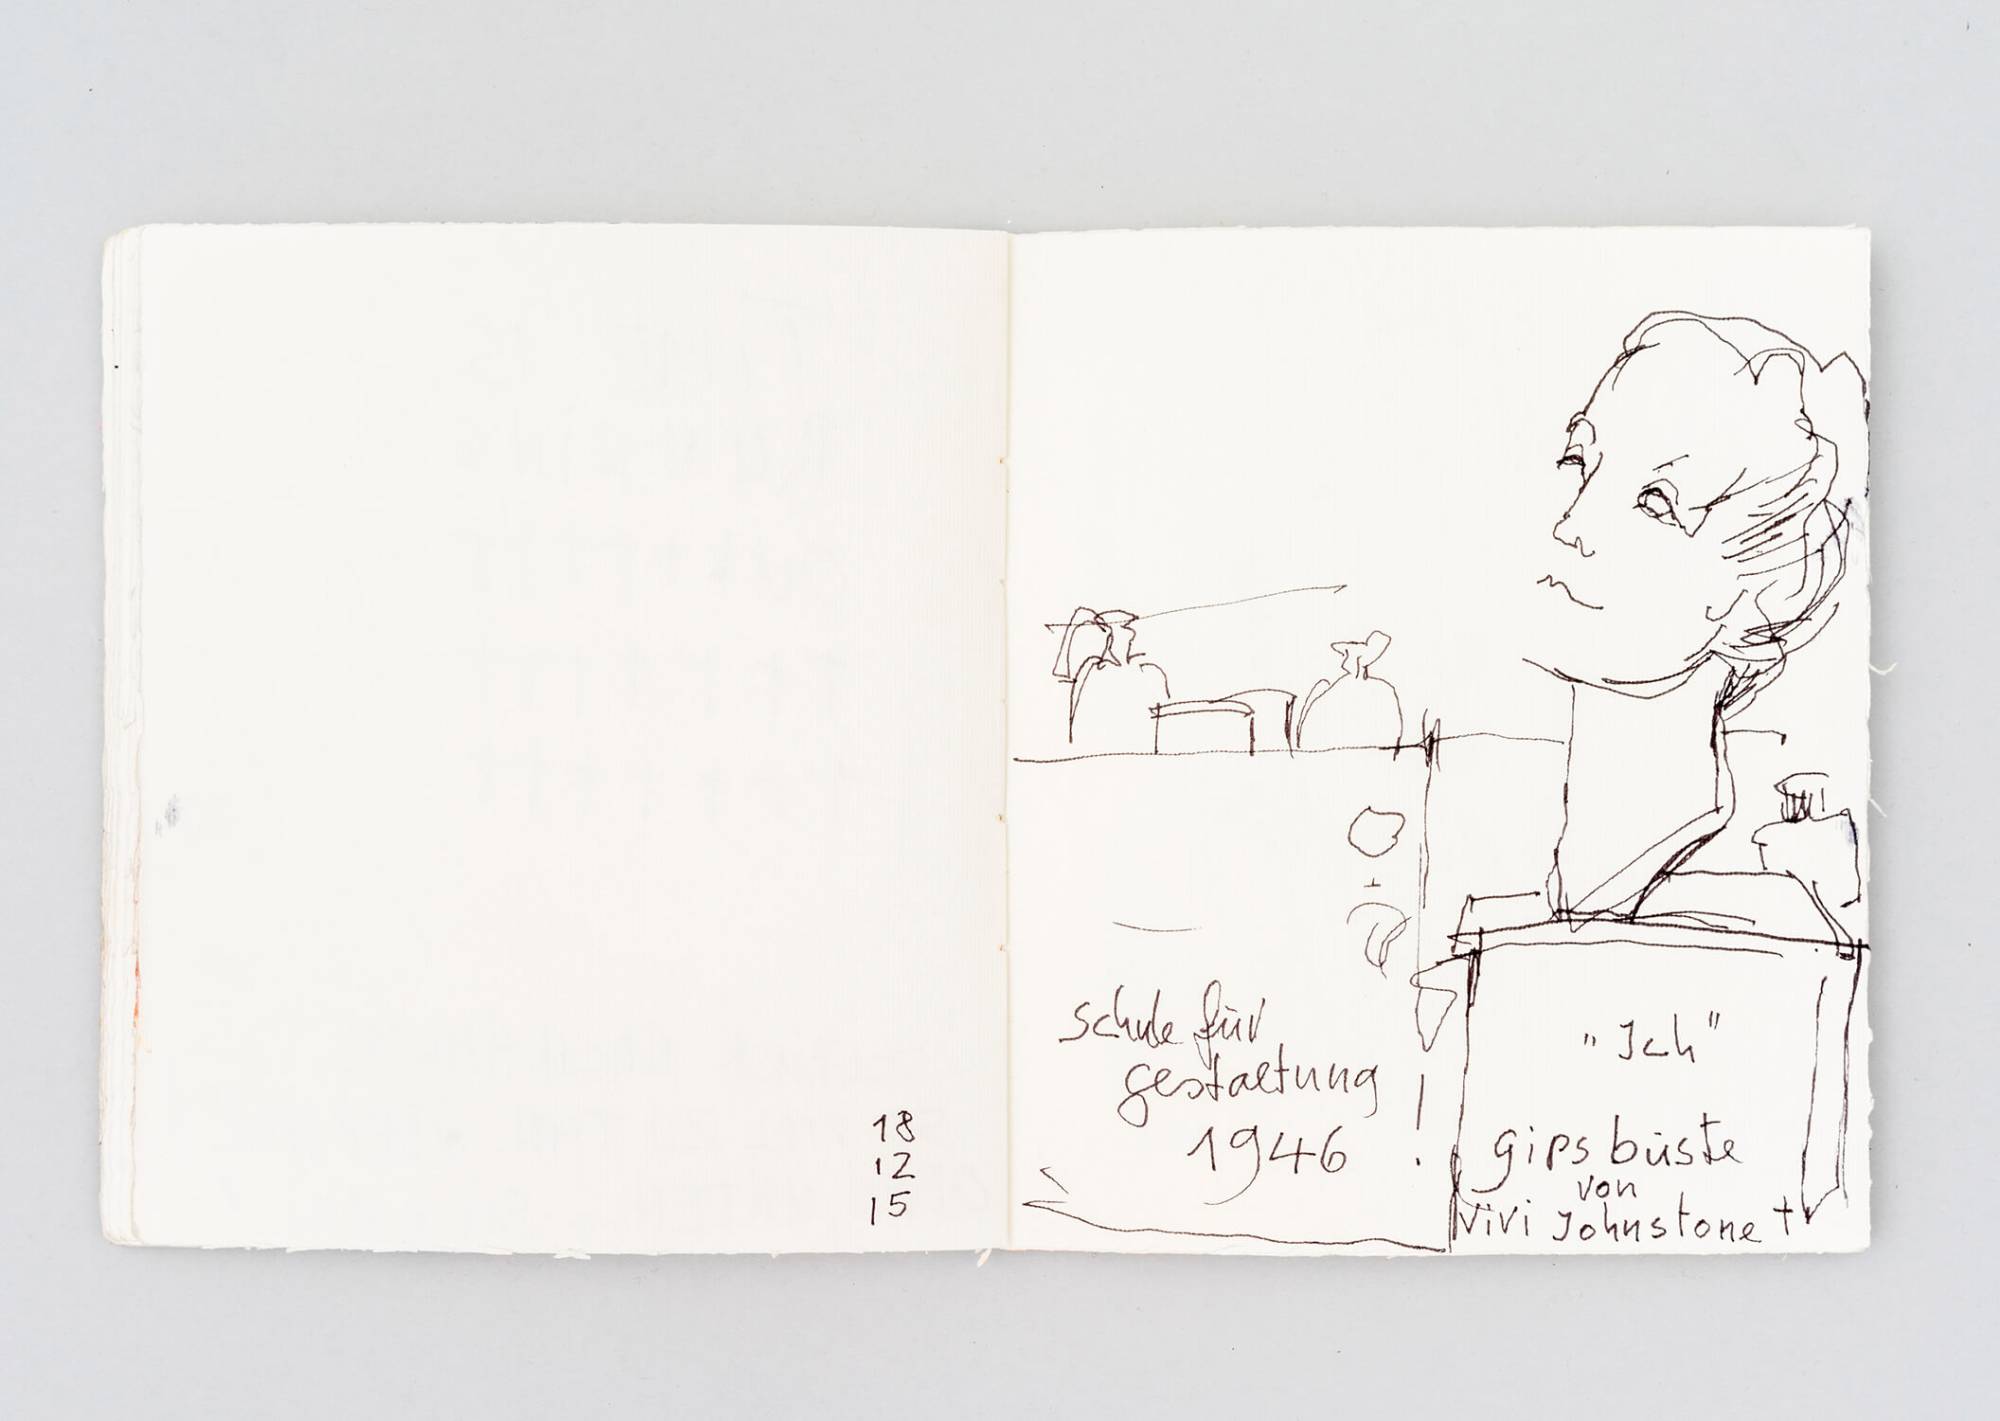 18
12
15
schule für
gestaltung
1946
!
"Ich"
gips büste
von
vivi Johnstone †